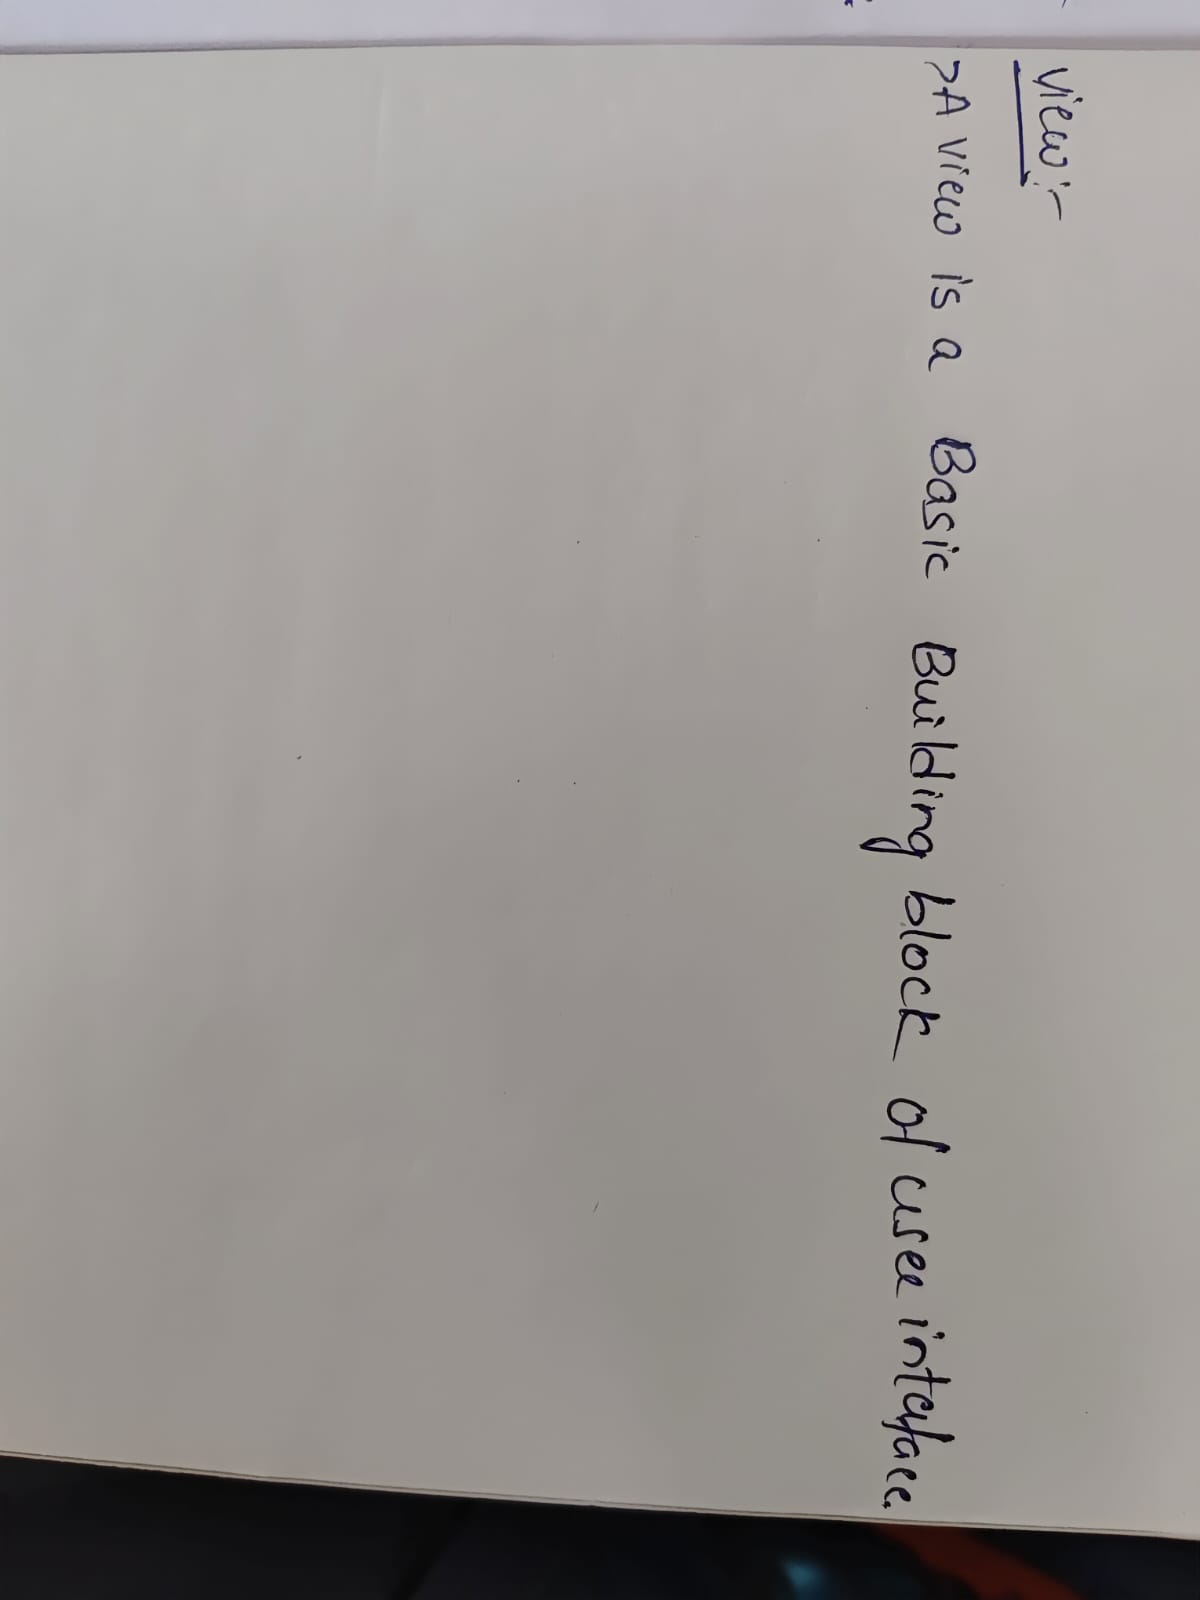 View:-
>A View is a Basic Building block of user interface.